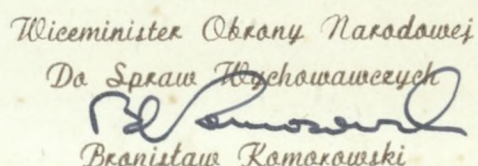 Wiceminister Obrony Narodowej
Do Spraw Wychowawczych
B. Komorowski
Bronisław Komorowski